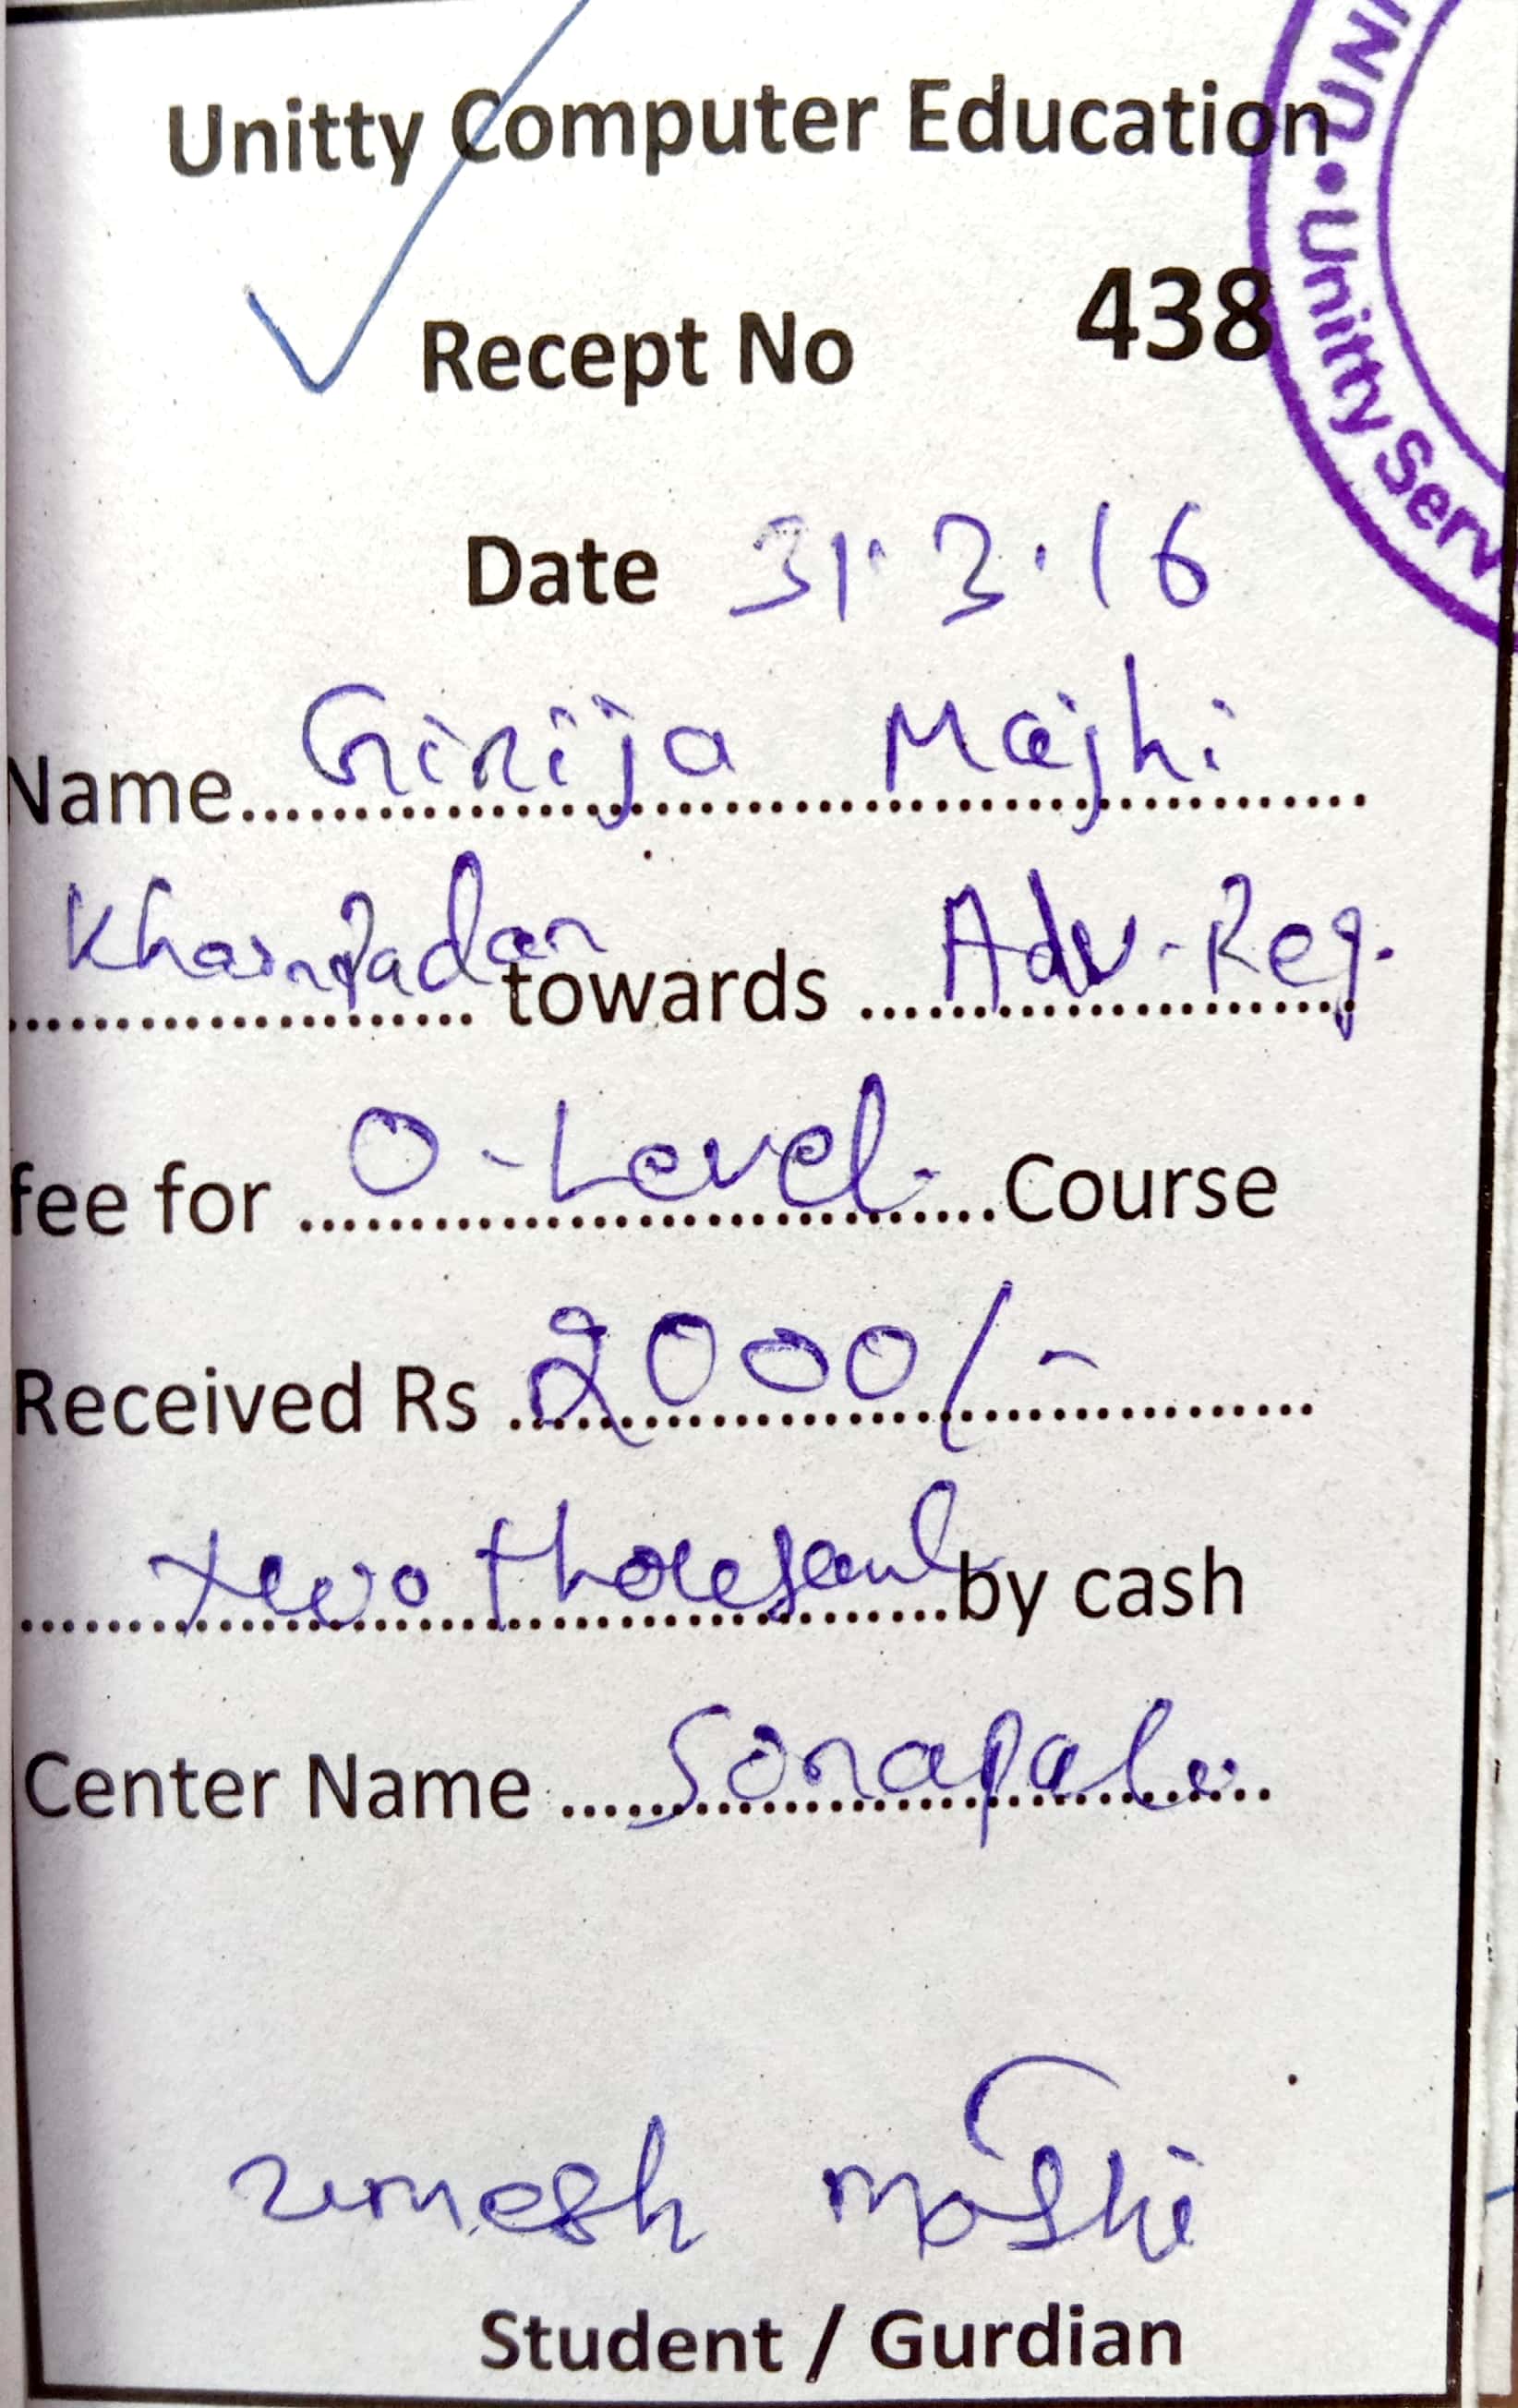 Unitty Computer Education
Recept No 438
Date 31.3.16
Name Girija Majhi
towards Adv. Reg.
fee for O-Level. Course
Received Rs 2000/-
two thousand by cash
Center Name Sonapali
umesh majhi
Student / Gurdian
UNI
• Unitty Serv